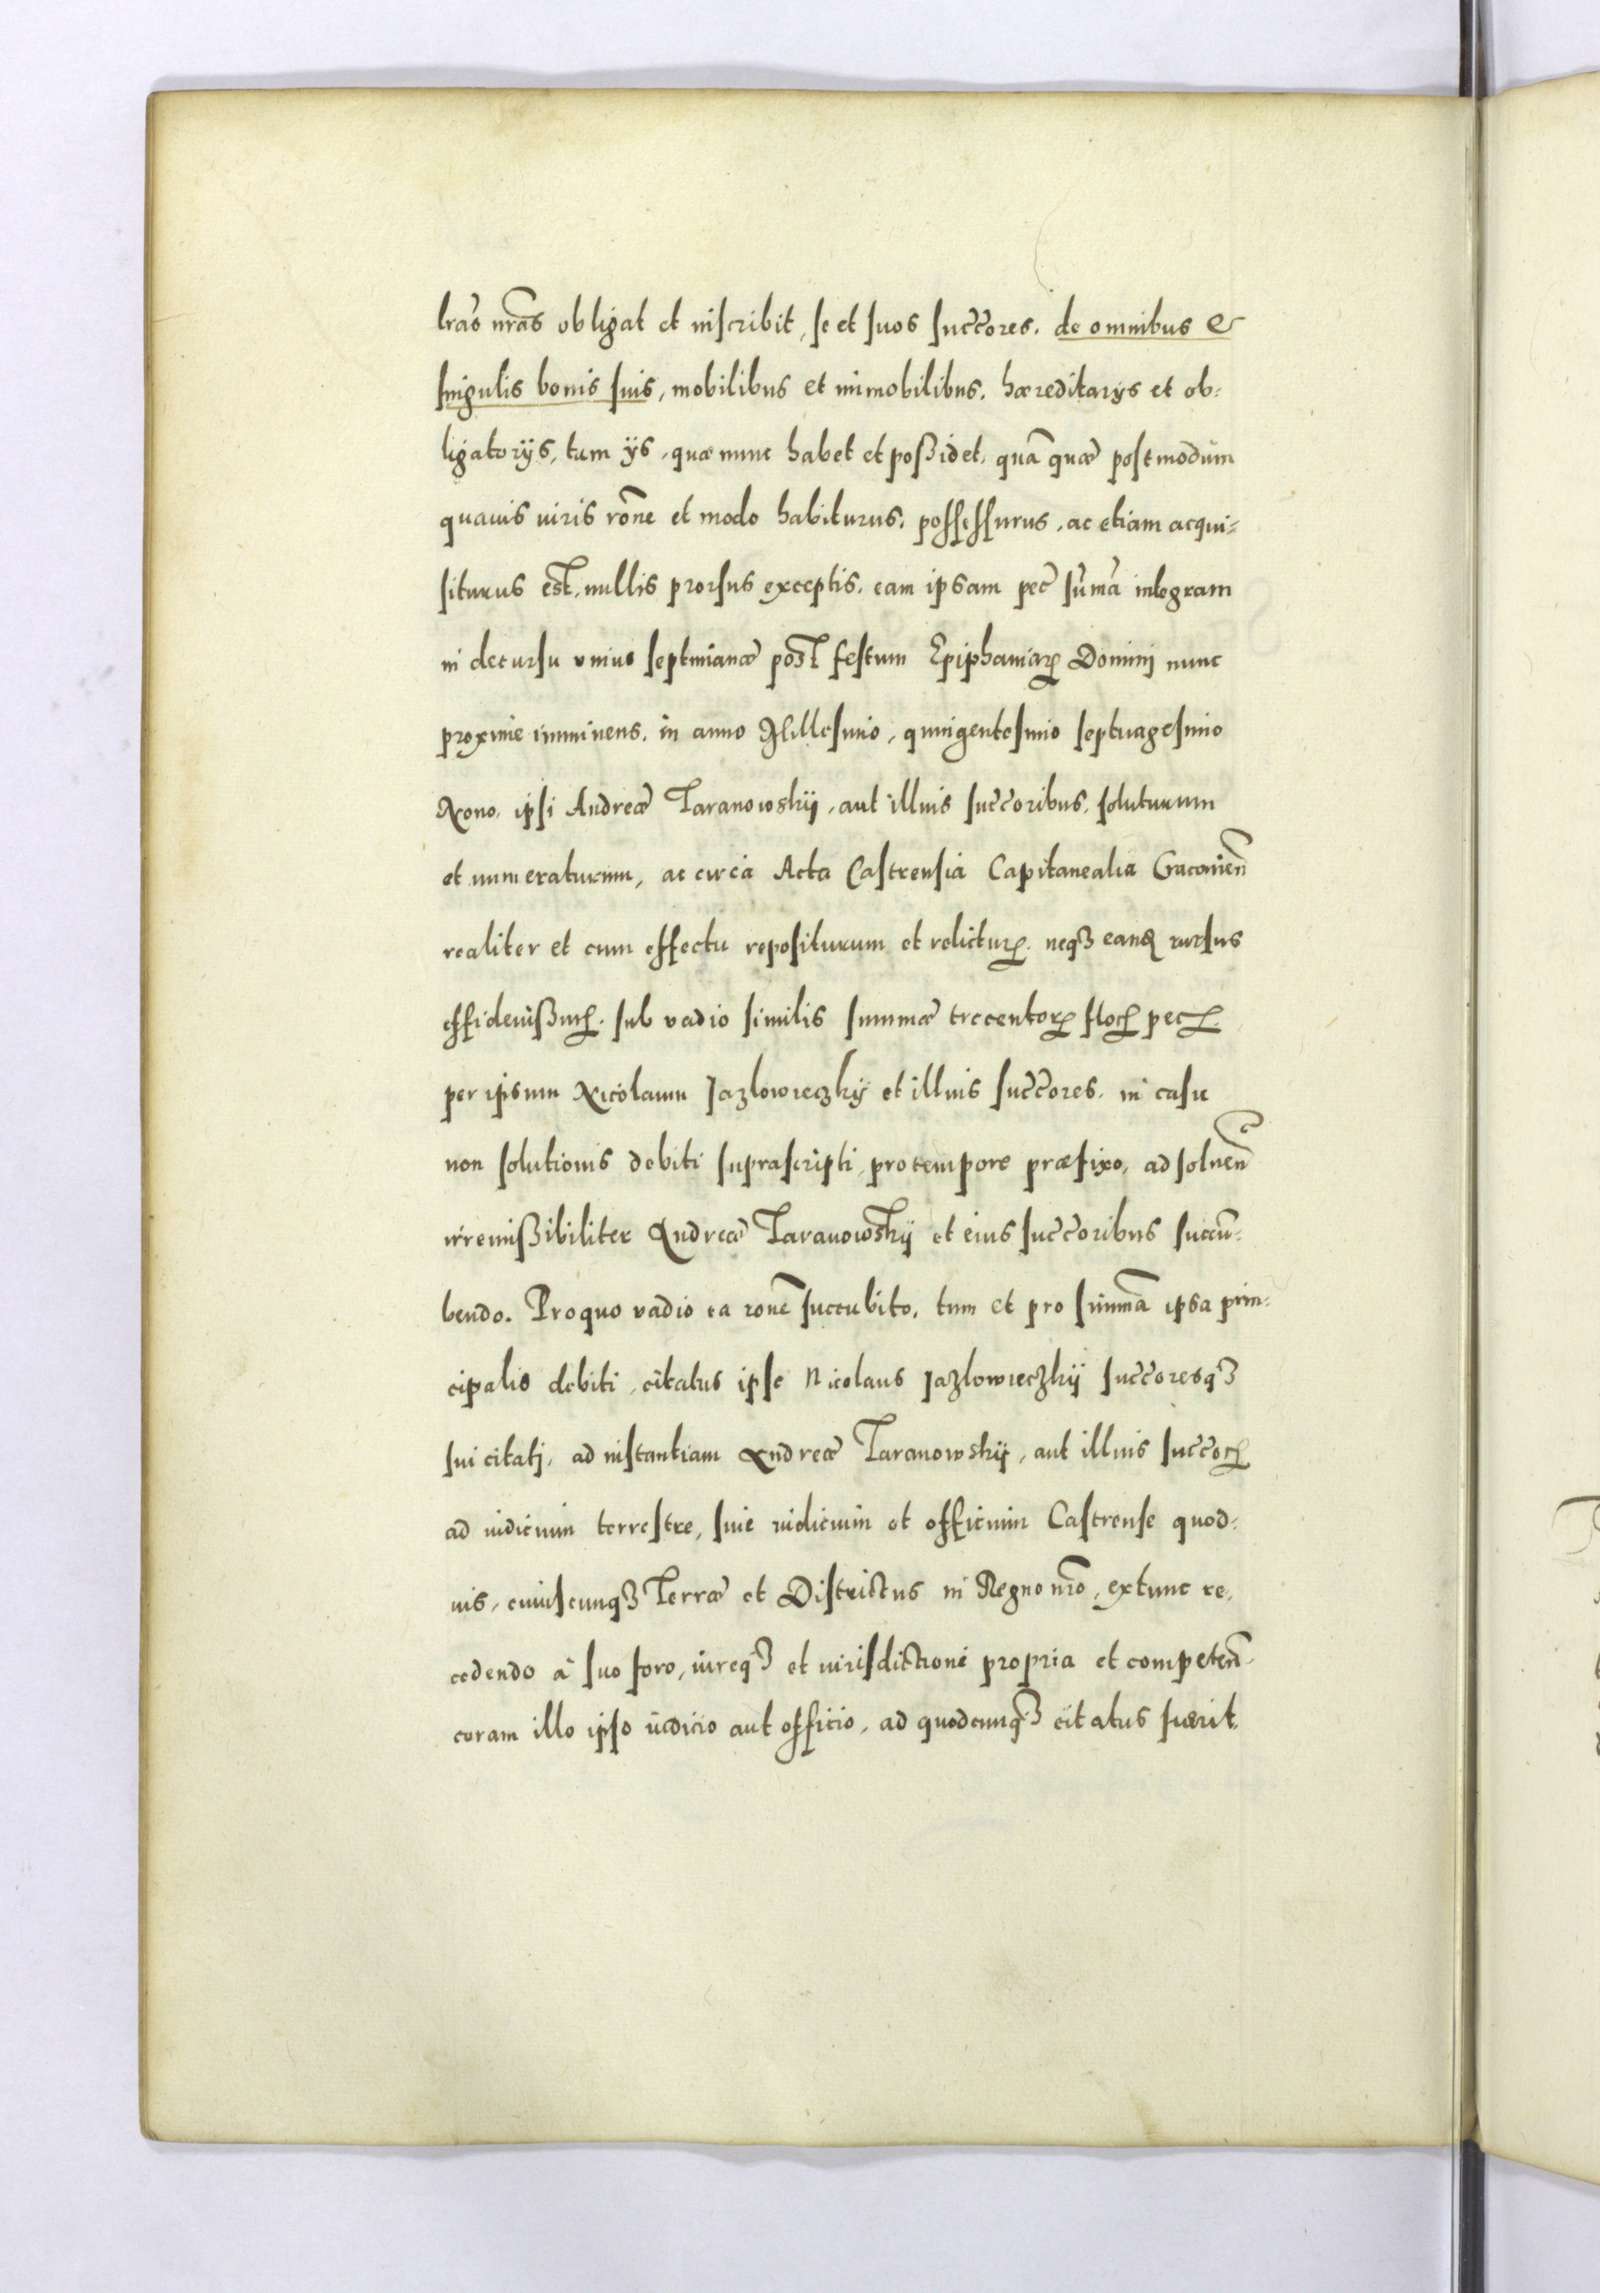 lras nras obligat et inscribit, se et suos succores. de omnibus &
singulis bonis suis, mobilibus et immobilibus. hæreditarijs et ob-
ligatorijs, tam ijs, quæ nunc habet et possidet, quā quæ postmodum
quauis iuris rōne et modo habiturus, possessurus, ac etiam acqui-
siturus est, nullis prorsus exceptis. eam ipsam pec̄ sūmā integram
in decursu vnius septimanæ post festum Epiphaniarꝝ Domini nunc
proxime imminens. in anno Millesimo, quingentesimo septuagesimo
Nono. ipsi Andreæ Taranowskij, aut illius succoribus, soluturum
et numeraturum, ac circa Acta Castrensia Capitanealia Cracouien̄
realiter et cum effectu repositurum et relicturꝝ. neqꝫ eand rursus
sub vadio similis summæ trecentorꝝ flocꝝ pecꝝ.
per ipsum Nicolaum Jazlowieczkij et illius succores. in casu
non solutionis debiti suprascripti, pro tempore præfixo, ad soluen̄
irremissibiliter Andreæ Taranowskij et eius succoribus succum-
bendo. Pro quo vadio ea rone succubito, tum et pro summā ipsa prin-
cipalis debiti, citatus ipse Nicolaus Jazlowieczkij succoresqꝫ
sui citatj, ad instantiam Andreæ Taranowskij, aut illius succorꝝ
ad iudicium terrestre, siue iudicium et officium Castrense quod-
uis, cuiuscunqꝫ Terræ et Districtus in Regno nro, extunc re-
cedendo à suo foro, iureqꝫ et iurisdictione propria et competen̄
coram illo ipso iudicio aut officio, ad quodcunqꝫ citatus fuerit.